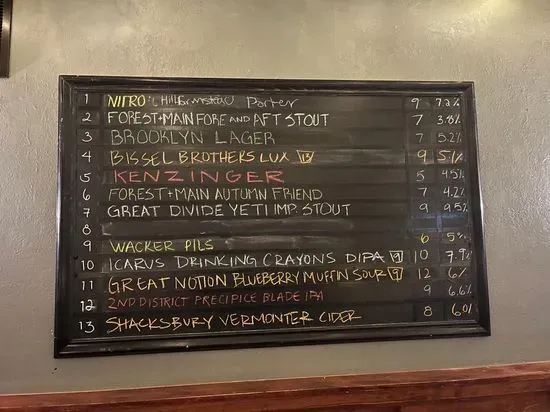 1 NITRO: Hill Farmstead Porter 9 7.2%
2 FOREST+MAIN FORE AND AFT STOUT 7 3.8%
3 BROOKLYN LAGER 7 5.2%
4 BISSEL BROTHERS LUX 9 5.1%
5 KENZINGER 5 4.5%
6 FOREST+MAIN AUTUMN FRIEND 7 4.2%
7 GREAT DIVIDE YETI IMP. STOUT 9 9.5%
8
9 WACKER PILS 6 5%
10 ICARUS DRINKING CRAYONS DIPA 10 7.9%
11 GREAT NOTION BLUEBERRY MUFFIN SOUR 12 6%
12 2ND DISTRICT PRECIPICE BLADE IPA 9 6.6%
13 SHACKSBURY VERMONTER CIDER 8 6.0%